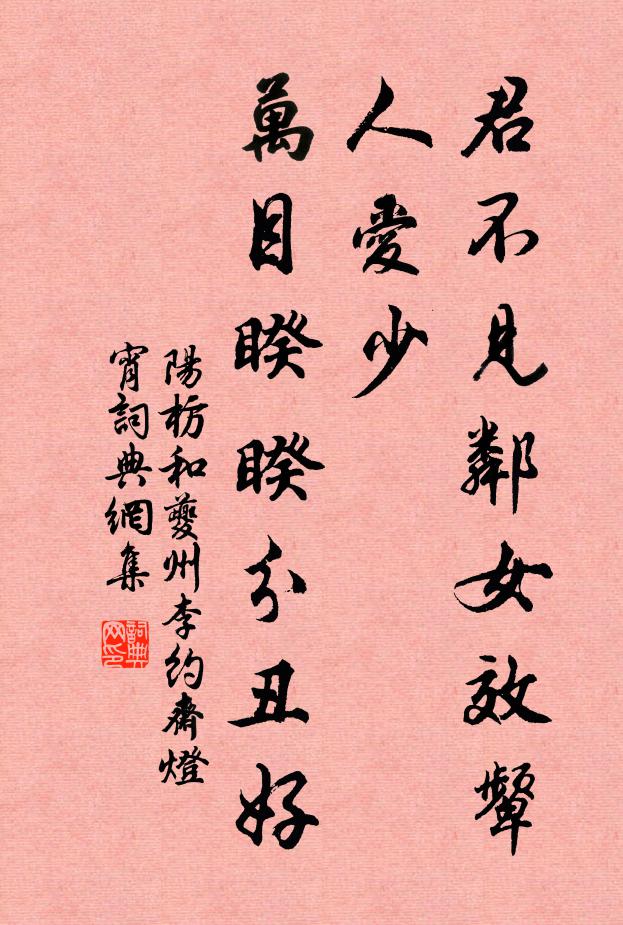 君不見鄰女效顰
人愛少
萬目睽睽分丑好
陽枋和夔州李約齋燈
宵詞典網集
詞典网印